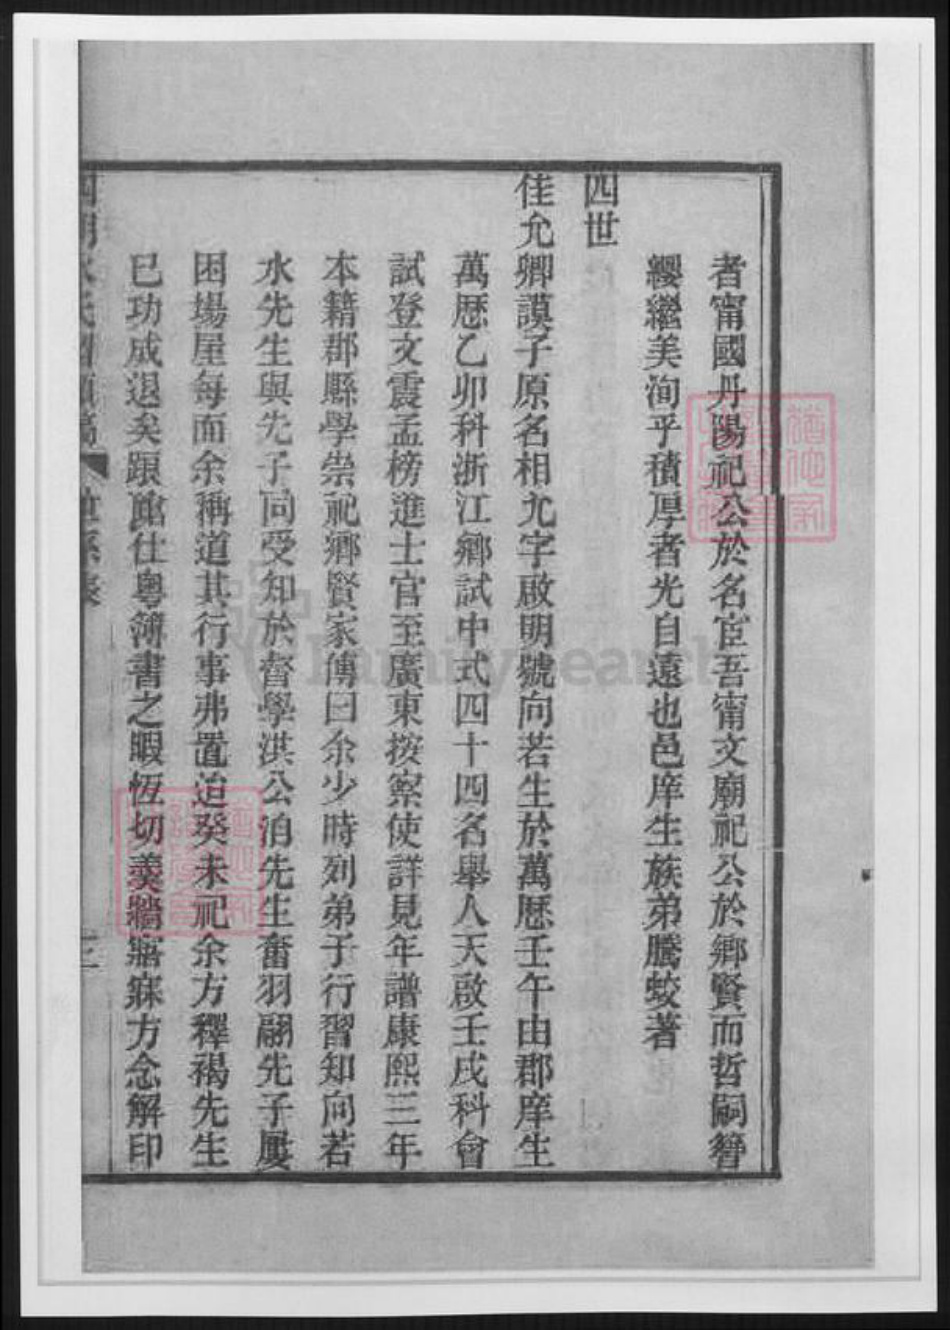 者甯國丹陽祀公於名宦吾甯文廟祀公於鄉賢而哲嗣簪
纓繼美洵乎積厚者光自遠也邑庠生族弟騰蛟著
四世
佳允卿謨子原名相允字啟明號向若生於萬歷壬午由郡庠生
萬歷乙卯科浙江鄉試中式四十四名舉人天啟壬戌科會
試登文震孟榜進士官至廣東按察使詳見年譜康熙三年
本籍郡縣學崇祀鄉賢家傳曰余少時列弟子行習知向若
水先生與先子同受知於督學洪公洎先生奮羽翮先子屢
困場屋每而余稱道其行事弗置迨癸未祀余方釋褐先生
已功成退矣踉蹌仕粵簿書之暇恆切羹牆寤寐方念解印
世系表
三
FamilySearch